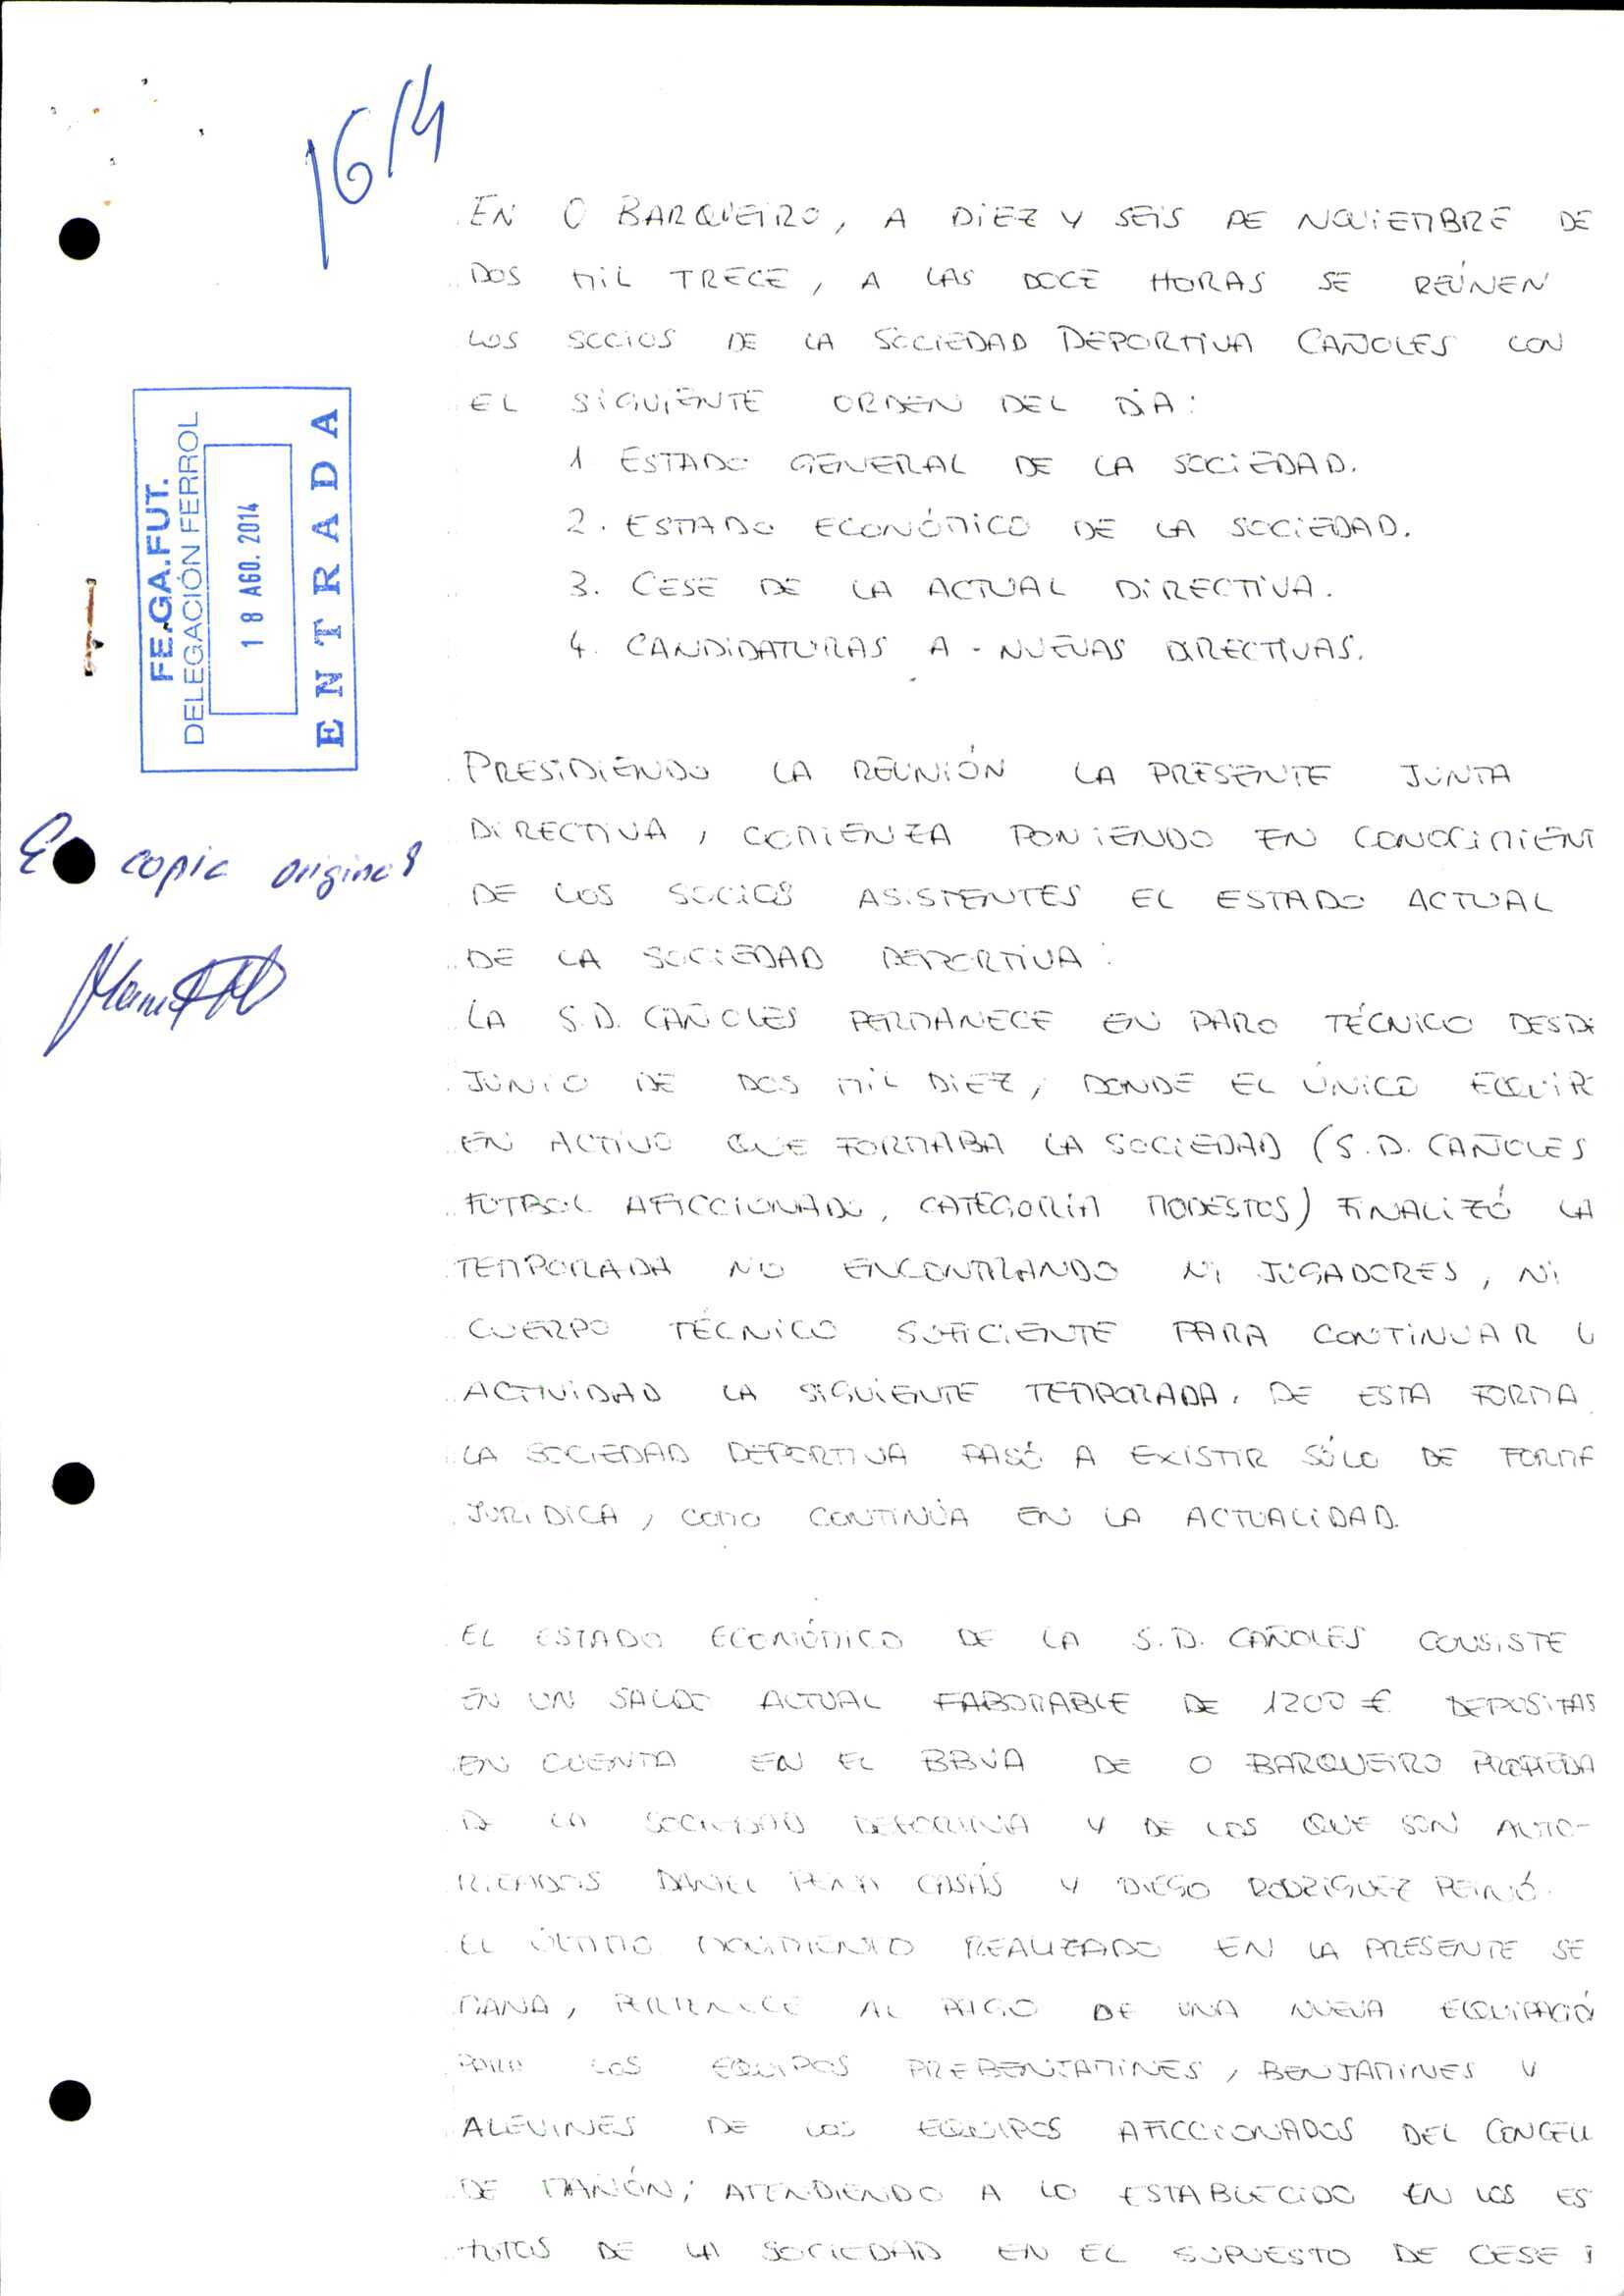 1614
EN O BARQUEIRO, A DIEZ Y SEIS DE NOVIEMBRE DE
DOS MIL TRECE, A LAS DOCE HORAS SE REÚNEN
LOS SOCIOS DE LA SOCIEDAD DEPORTIVA CAÑOLES CON
EL SIGUIENTE ORDEN DEL DIA:
1 ESTADO GENERAL DE LA SOCIEDAD.
2. ESTADO ECONÓMICO DE LA SOCIEDAD.
3. CESE DE LA ACTUAL DIRECTIVA.
4. CANDIDATURAS A - NUEVAS DIRECTIVAS.
FE.GA.FUT.
DELEGACIÓN FERROL
18 AGO. 2014
ENTRADA
copia original
PRESIDIENDO LA REUNIÓN LA PRESENTE JUNTA
DIRECTIVA, COMIENZA PONIENDO EN CONOCIMIENT
DE LOS SOCIOS ASISTENTES EL ESTADO ACTUAL
DE LA SOCIEDAD DEPORTIVA:
LA S.D. CAÑOLES PERMANECE EN PARO TÉCNICO DESDE
JUNIO DE DOS MIL DIEZ, DONDE EL ÚNICO EQUIP
EN ACTIVO QUE FORMABA LA SOCIEDAD (S.D. CAÑOLES
FUTBOL AFICCIONADO, CATEGORÍA MODESTOS) FINALIZÓ LA
TEMPORADA NO ENCONTRANDO NI JUGADORES, NI
CUERPO TÉCNICO SUFICIENTE PARA CONTINUAR L
ACTIVIDAD LA SIGUIENTE TEMPORADA. DE ESTA FORMA
LA SOCIEDAD DEPORTIVA PASÓ A EXISTIR SÓLO DE FORMA
JURIDICA, COMO CONTINÚA EN LA ACTUALIDAD.
EL ESTADO ECONÓMICO DE LA S.D. CAÑOLES CONSISTE
EN UN SALDO ACTUAL FABORABLE DE 1200 € DEPOSITAS
EN CUENTA EN EL BBVA DE O BARQUEIRO PROPIEDA
DE LA SOCIEDAD DEPORTIVA Y DE LOS QUE SON AUTO-
RIZADOS DANIEL PENA CASÁS Y DIEGO RODRÍGUEZ PEINÓ.
EL ÚLTIMO MOVIMIENTO REALIZADO EN LA PRESENTE SE
MANA, PERTENECE AL PAGO DE UNA NUEVA EQUIPACIÓ
PARA LOS EQUIPOS PREBENJAMINES, BENJAMINES Y
ALEVINES DE LOS EQUIPOS AFICCIONADOS DEL CONCELL
DE MAÑÓN; ATENDIENDO A LO ESTABLECIDO EN LOS ES
TUTOS DE LA SOCIEDAD EN EL SUPUESTO DE CESE